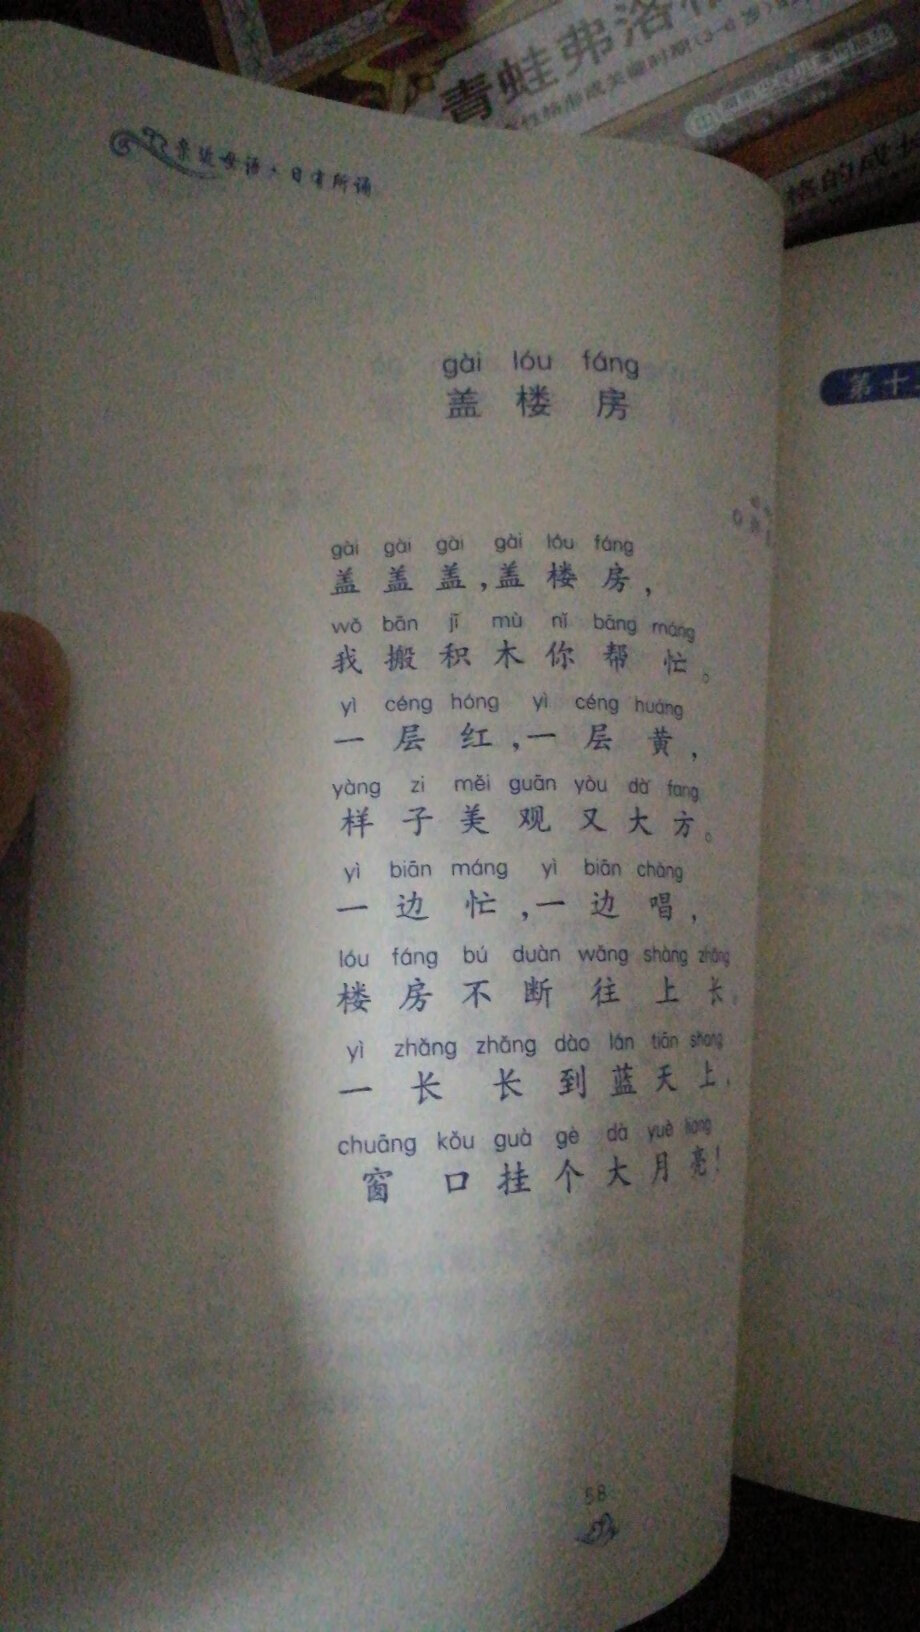 青蛙弗洛
亲近母语·日有所诵
第十
gài lóu fáng
盖楼房
gài gài gài gài lóu fáng
盖盖盖，盖楼房，
wǒ bān jī mù nǐ bāng máng
我搬积木你帮忙。
yì céng hóng yì céng huáng
一层红，一层黄，
yàng zi měi guān yòu dà fang
样子美观又大方。
yì biān máng yì biān chàng
一边忙，一边唱，
lóu fáng bú duàn wǎng shàng zhǎng
楼房不断往上长。
yì zhǎng zhǎng dào lán tiān shang
一长长到蓝天上，
chuāng kǒu guà gè dà yuè liang
窗口挂个大月亮！
58